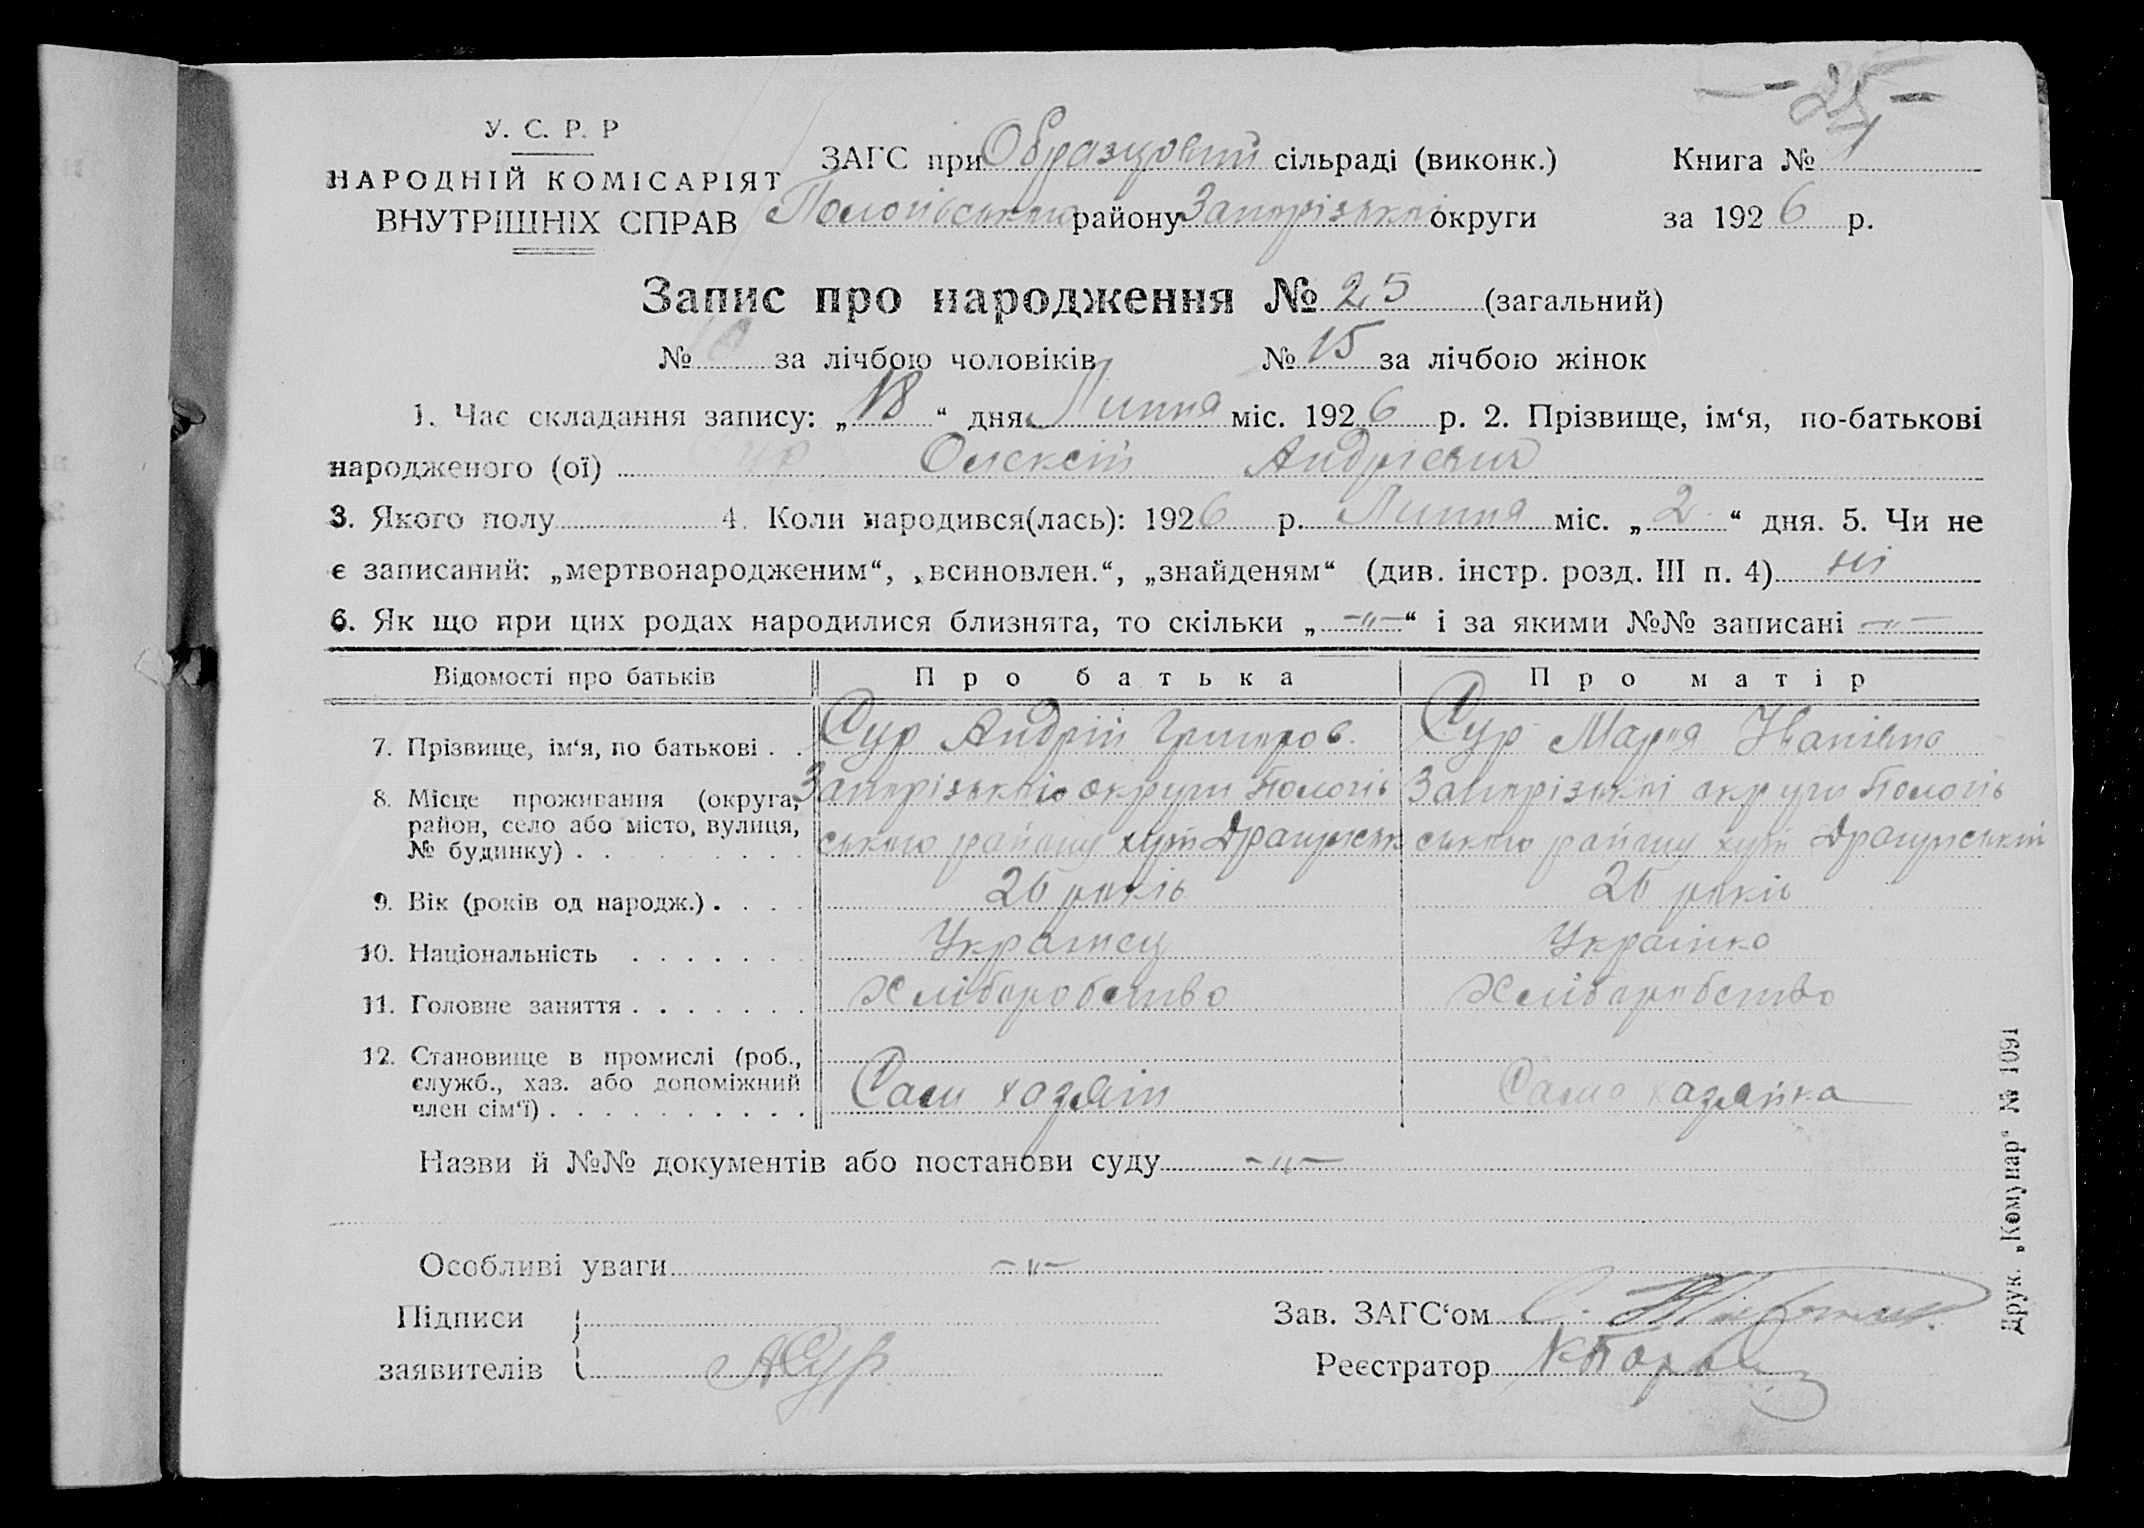 - 25 -
У. С. Р. Р
НАРОДНІЙ КОМІСАРІЯТ
ВНУТРІШНІХ СПРАВ
ЗАГС при Образцовій сільраді (виконк.) Книга № 1
Пологівського району Запорізької округи за 1926 р.
Запис про народження № 25 (загальний)
№ 10 за лічбою чоловіків № 15 за лічбою жінок
1. Час складання запису: „18“ дня Липня міс. 1926 р. 2. Прізвище, ім‘я, по-батькові
народженого (ої) Сур Олексій Андрієвич
3. Якого полу 4. Коли народився(лась): 1926 р. Липня міс. „2“ дня. 5. Чи не
є записаний: „мертвонародженим“, „всиновлен.“, „знайденям“ (див. інстр. розд. III п. 4) ні
6. Як що при цих родах народилися близнята, то скільки „-„-“ і за якими №№ записані -„-
Відомості про батьків Про батька Про матір
7. Прізвище, ім‘я, по батькові . . Сур Андрій Григоров. Сур Марія Іванівна
8. Місце проживання (округа, Запорізької округи Пологів Запорізької округи Пологів
район, село або місто, вулиця,
№ будинку) . . . . . . . . ського району хут ського району хут
9. Вік (років од народж.) . . . . 26 років 26 років
10. Національність . . . . . . . Українец Українка
11. Головне заняття . . . . . . . Хліборобство Хліборобство
12. Становище в промислі (роб.,
служб., хаз. або допоміжний
член сім‘ї) . . . . . . . . . . Сам хозяїн Сама хазяйка
Назви й №№ документів або постанови суду -„-
Особливі уваги -„-
Підписи
заявителів АСур
Зав. ЗАГС‘ом
Реєстратор
Друк. „Комунар“ № 1091